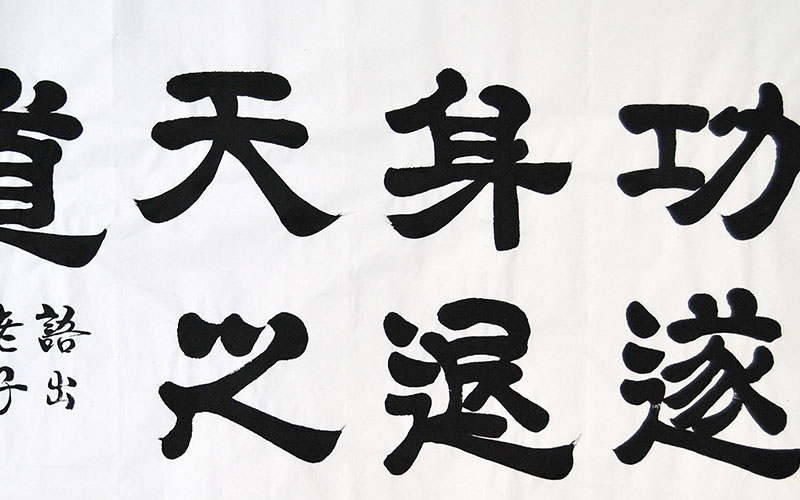 功遂
身退
天之
道
語出
老子